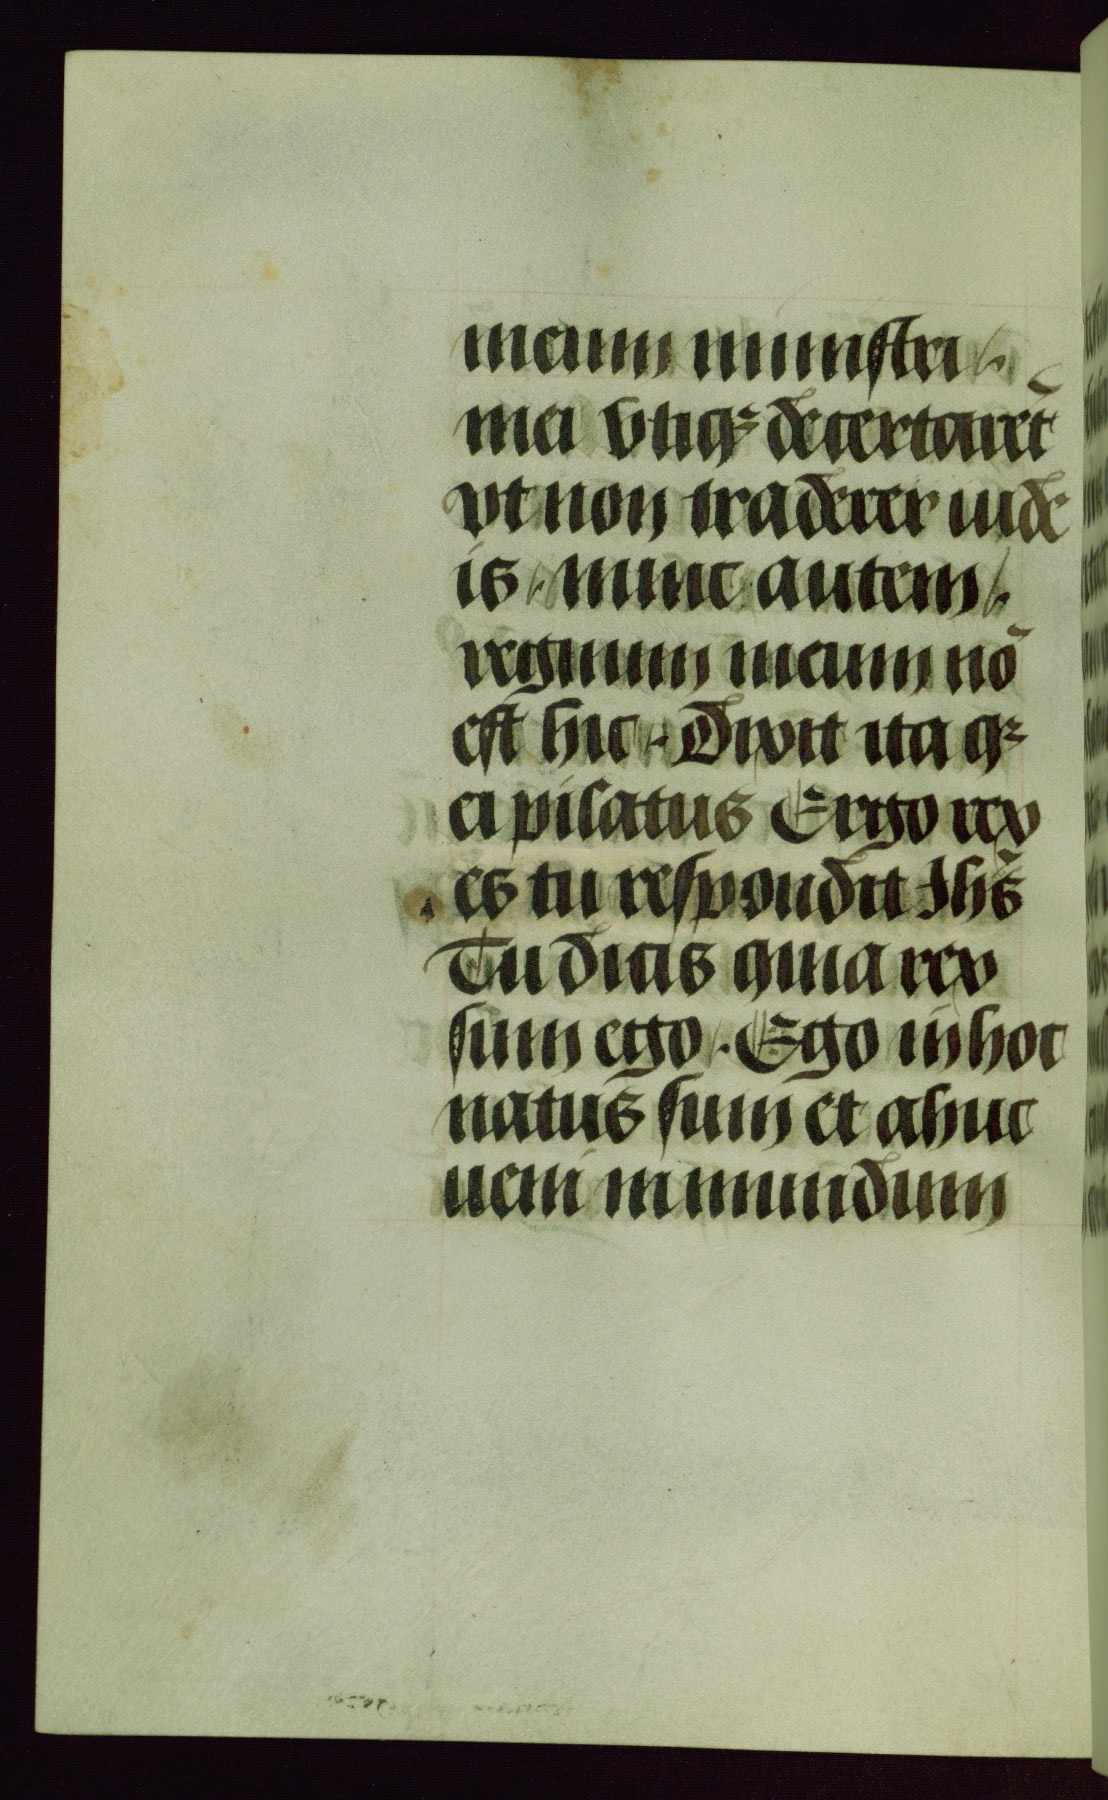 meum ministri
mei vtiqꝫ decertarēt
vt non traderer iude
is. nunc autem
regnum meum nō
est hic. Dixit ita qꝫ
ei pilatus Ergo rex
es tu respondit Jhs̄
Tu dicis quia rex
sum ego. Ego in hoc
natus sum et ahuc
ueni in mundum